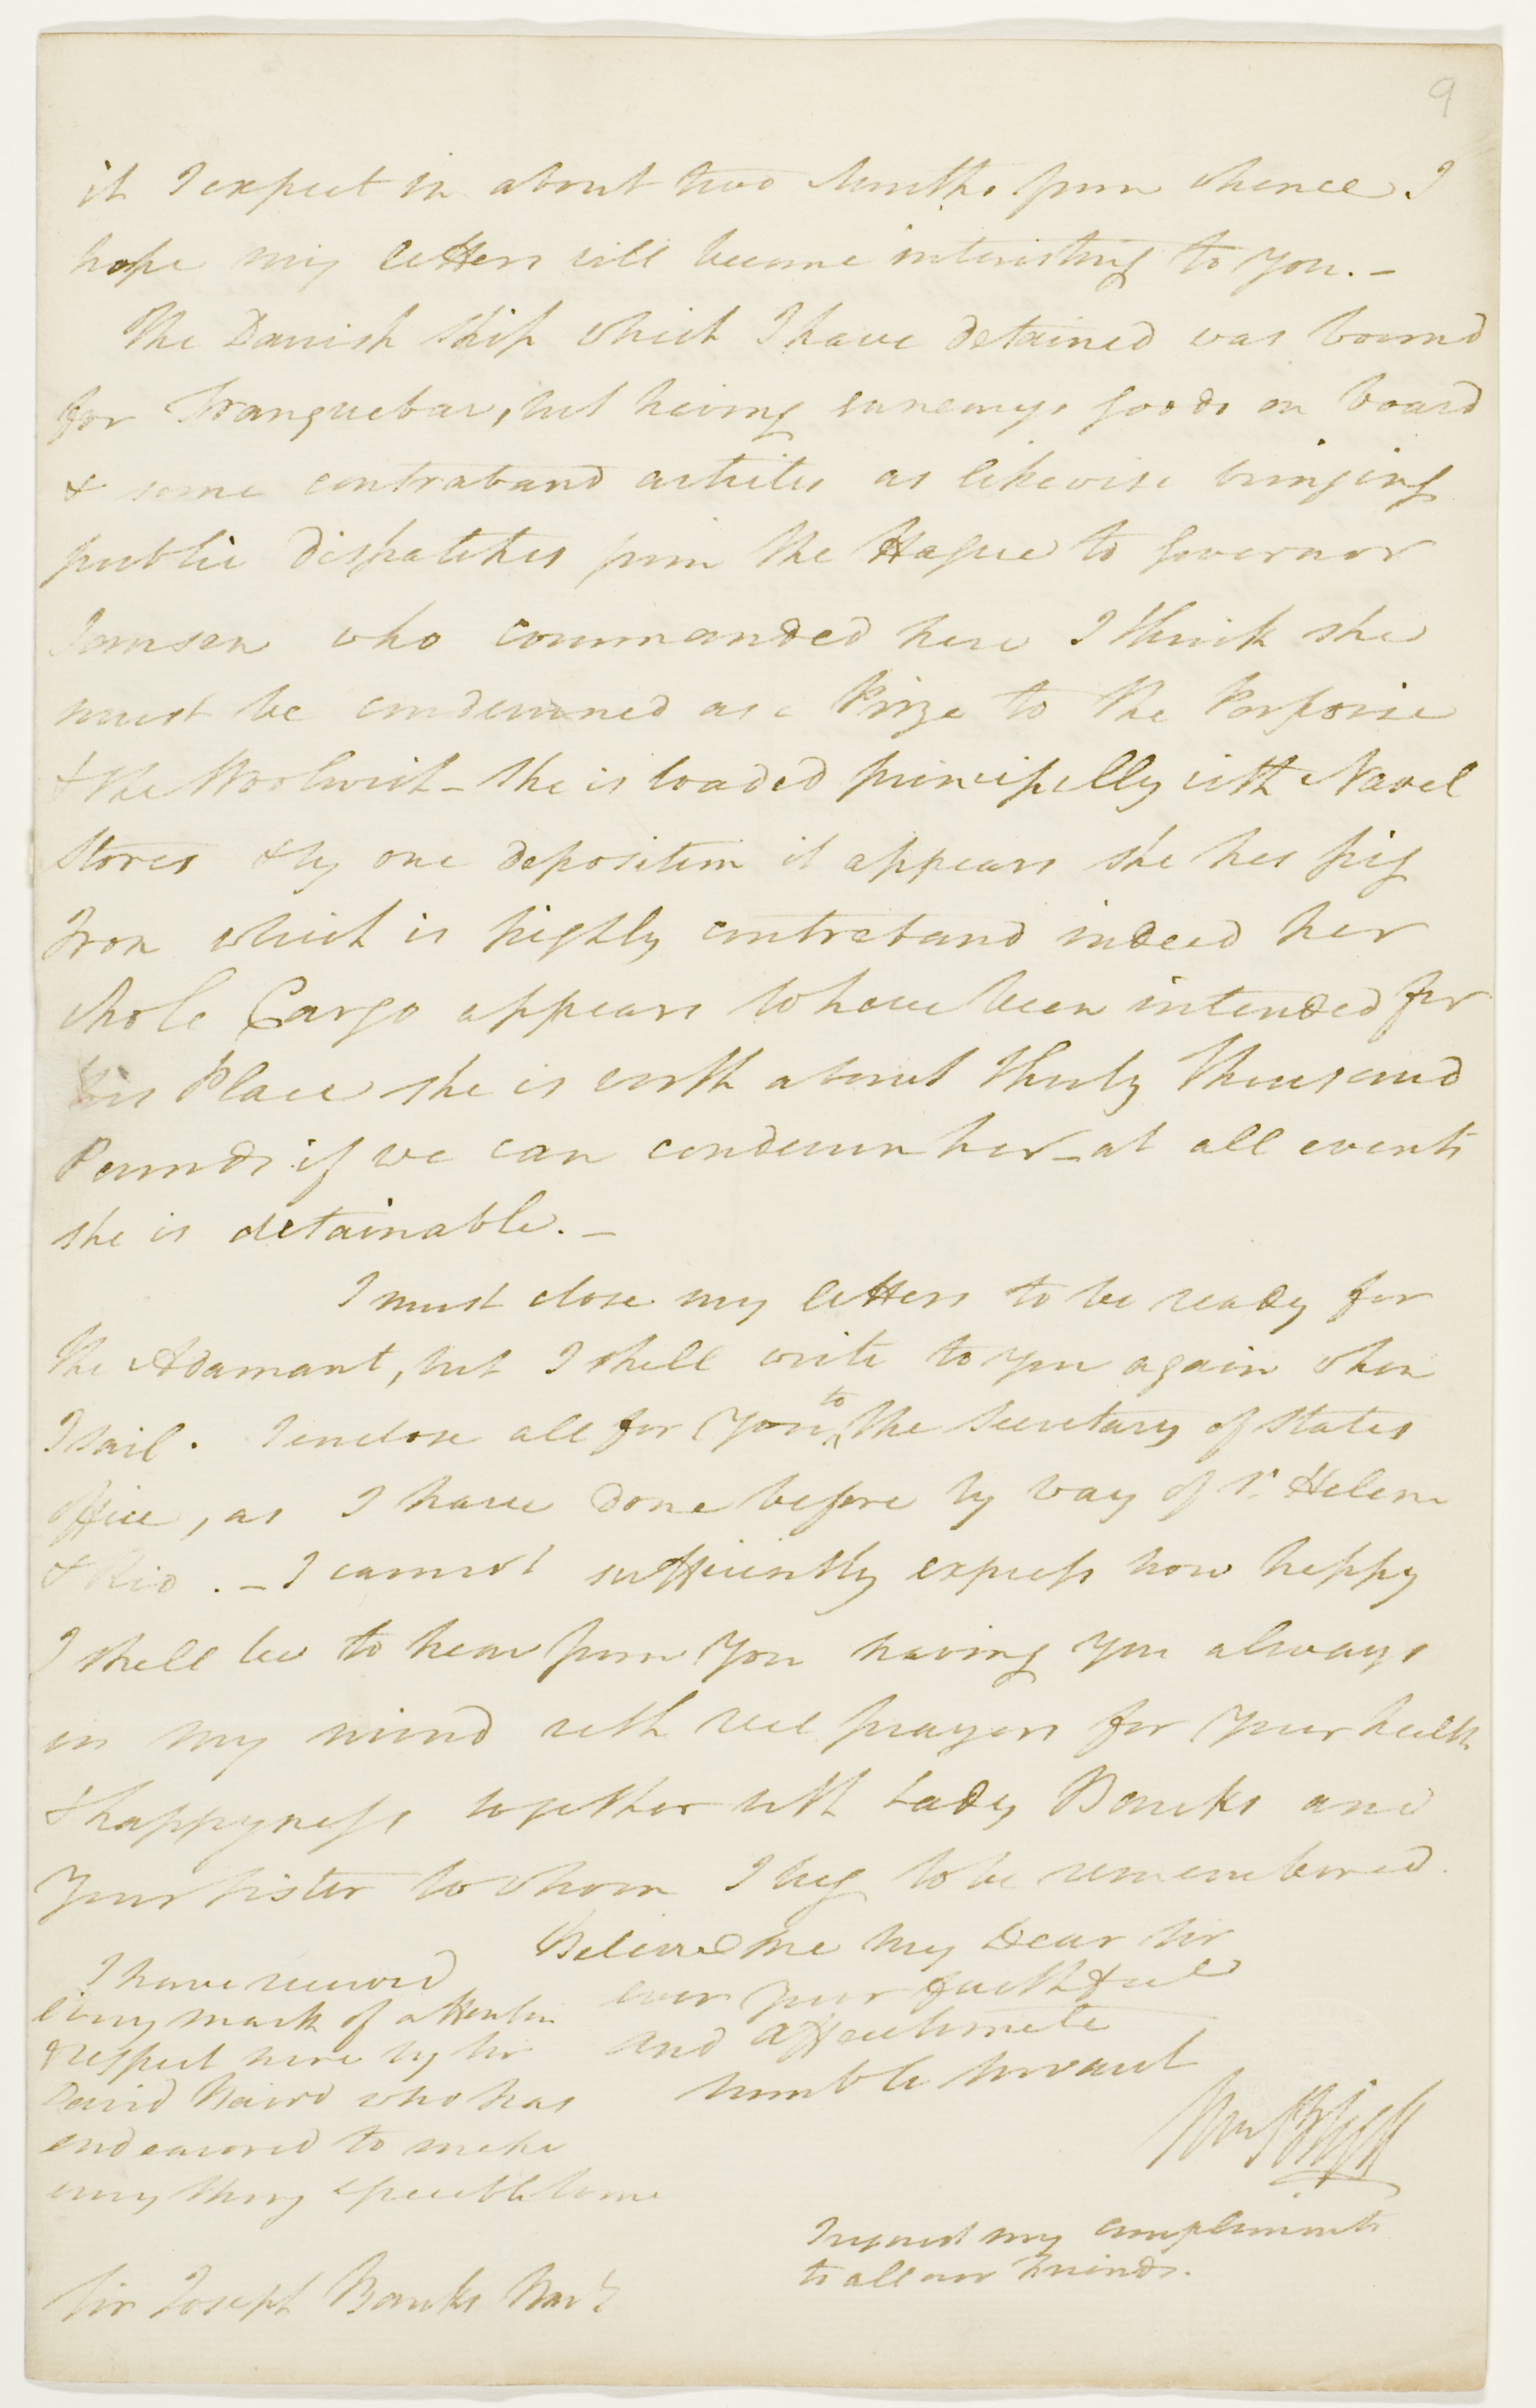 9
it I expect in about two Months from whence I
hope my letters will become interesting to you. —
The Danish Ship which I have detained was bound
for Tranquebar, but having enemys goods on board
& some contraband articles as likewise bringing
public dispatches from the Hague to Governor
Jansen who commanded here I think she
must be condemned as a Prize to the Porpoise
& the Woolwich — She is loaded principally with Naval
Stores & by one deposition it appears she has pig
Iron which is highly contraband indeed her
whole Cargo appears to have been intended for
this Place she is worth about Thirty Thousand
Pounds if we can condemn her — at all events
she is detainable. —
I must close my letters to be ready for
the Adamant, but I shall write to you again when
I sail. I enclose all for You to the Secretary of States
office, as I have done before by way of St. Helena
& Rio. — I cannot sufficiently express how happy
I shall be to hear from You having you always
in my mind with real prayers for Your health
& happyness together with Lady Banks and
Your Sister to whom I beg to be remembered.
Believe me my Dear Sir
ever your faithful
and affectionate
humble Servant
Wm Bligh
I have received
every mark of attention
& respect here by Sir
David Baird who has
endeavored to make
every thing agreeable to me
I request my compliments
to all our Friends.
Sir Joseph Banks Bart